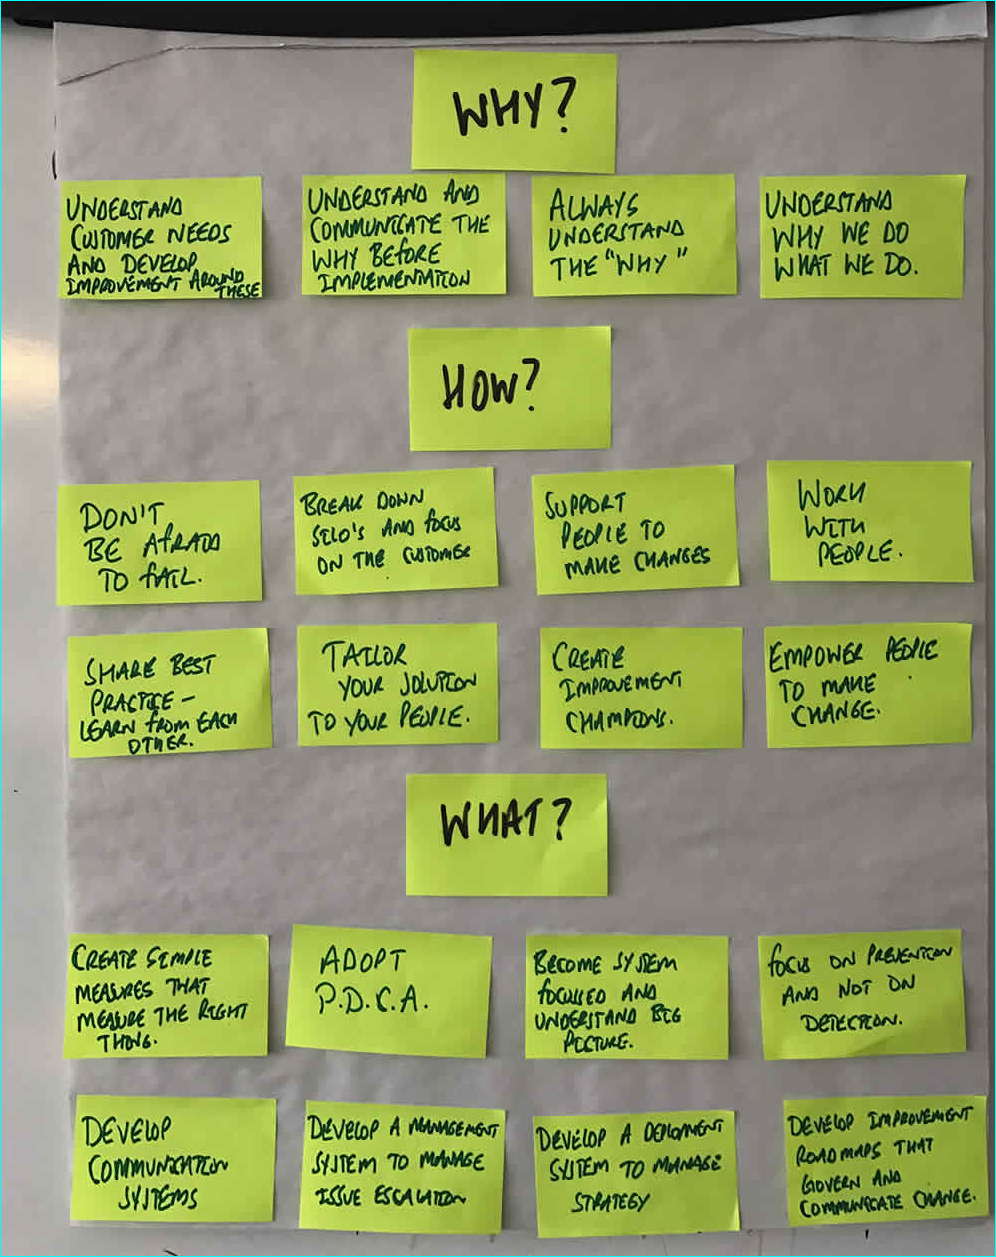 WHY?
UNDERSTAND
CUSTOMER NEEDS
AND DEVELOP
IMPROVEMENT AROUND
THESE
UNDERSTAND AND
COMMUNICATE THE
WHY BEFORE
IMPLEMENTATION
ALWAYS
UNDERSTAND
THE "WHY"
UNDERSTAND
WHY WE DO
WHAT WE DO.
HOW?
DON'T
BE AFRAID
TO FAIL.
BREAK DOWN
SILO'S AND FOCUS
ON THE CUSTOMER
SUPPORT
PEOPLE TO
MAKE CHANGES
WORK
WITH
PEOPLE.
SHARE BEST
PRACTICE -
LEARN FROM EACH
OTHER.
TAILOR
YOUR SOLUTION
TO YOUR PEOPLE.
CREATE
IMPROVEMENT
CHAMPIONS.
EMPOWER PEOPLE
TO MAKE
CHANGE.
WHAT?
CREATE SIMPLE
MEASURES THAT
MEASURE THE RIGHT
THING.
ADOPT
P.D.C.A.
BECOME SYSTEM
FOCUSED AND
UNDERSTAND BIG
PICTURE.
FOCUS ON PREVENTION
AND NOT ON
DETECTION.
DEVELOP
COMMUNICATION
SYSTEMS
DEVELOP A MANAGEMENT
SYSTEM TO MANAGE
ISSUE ESCALATION
DEVELOP A DEPLOYMENT
SYSTEM TO MANAGE
STRATEGY
DEVELOP IMPROVEMENT
ROADMAPS THAT
GOVERN AND
COMMUNICATE CHANGE.